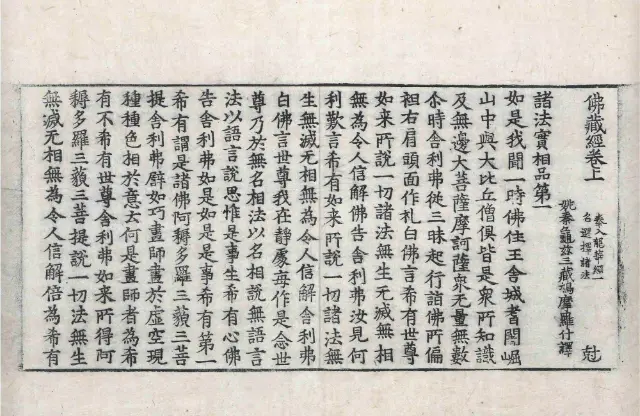 佛藏經卷上
入龍華經一
名選擇諸法
姚秦龜茲三藏鳩摩羅什譯
諸法實相品第一
如是我聞一時佛住王舍城耆闍崛
山中與大比丘僧俱皆是衆所知識
及無邊大菩薩摩訶薩衆无量無數
尒時舍利弗從三昧起行詣佛所偏
袒右肩頭面作礼白佛言希有世尊
如來所說一切諸法無生无滅無相
無為令人信解佛告舍利弗汝見何
利歎言希有如來所說一切諸法無
生無滅无相無為令人信解舍利弗
白佛言世尊我在靜處每作是念世
尊乃於無名相法以名相說無語言
法以語言說思惟是事生希有心佛
告舍利弗如是如是是事希有第一
希有謂是諸佛阿耨多羅三藐三菩
提舍利弗辟如巧畫師畫於虛空現
種種色相於意云何是畫師者為希
有不希有世尊舍利弗如來所得阿
耨多羅三藐三菩提說一切法無生
無滅无相無為令人信解倍為希有